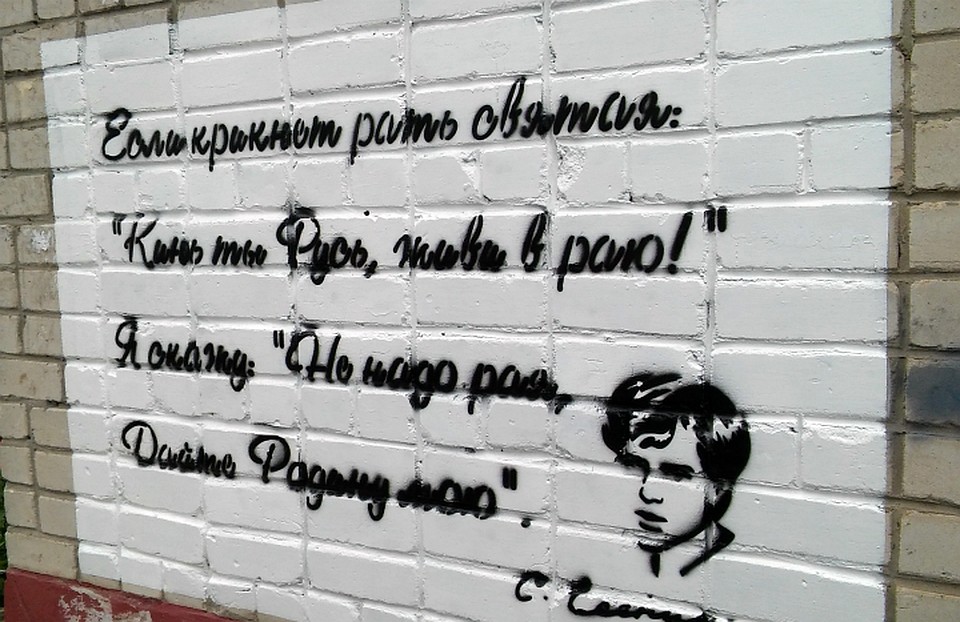 Если крикнет рать святая:
"Кинь ты Русь, живи в раю!"
Я скажу: "Не надо рая,
Дайте Родину мою".
С. Есенин